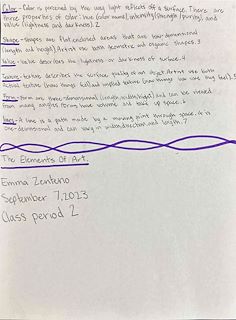 Color - Color is produced by the way light reflects off a surface. There are
three properties of color: hue (color name), intensity (strength | purity), and
value (lightness and darkness). 2
Shape - shapes are flat, enclosed areas that are two-dimensional
(length and height). Artist use both geometric and organic shapes. 3
Value - value describes the lightness or darkness of surface. 4
Texture - texture describes the surface quality of an object. Artist use both
actual texture (how things feel) and implied texture (how things look like they feel). 5
Form - form are three-dimensional (length, width, height) and can be viewed
from many angles. forms have volume and take up space. 6
Line - A line is a path made by a moving point through space. It is
one-dimensional and can vary in width, direction, and length. 7
The Elements Of Art.
Emma Zenteno
September 7, 2023
Class period 2